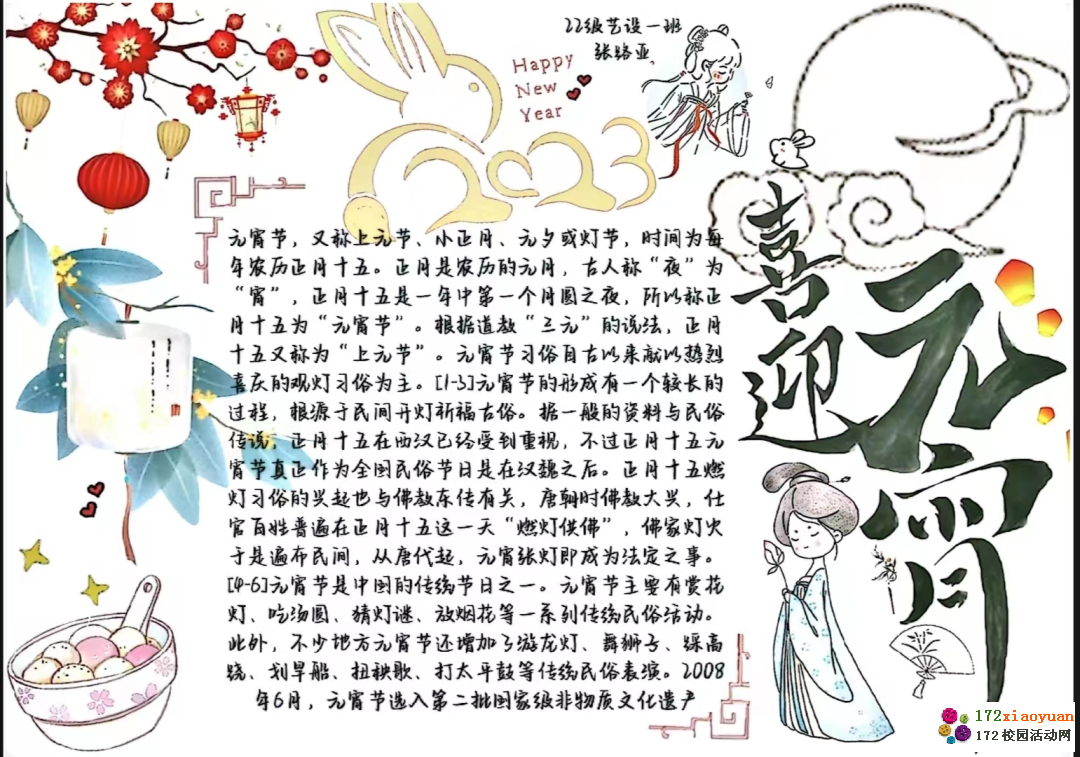 22级艺设一班
张路亚
Happy
New
Year
2023
喜迎
元宵
元宵节，又称上元节、小正月、元夕或灯节，时间为每
年农历正月十五。正月是农历的元月，古人称“夜”为
“宵”，正月十五是一年中第一个月圆之夜，所以称正
月十五为“元宵节”。根据道教“三元”的说法，正月
十五又称为“上元节”。元宵节习俗自古以来就以热烈
喜庆的观灯习俗为主。[1-3]元宵节的形成有一个较长的
过程，根源于民间开灯祈福古俗。据一般的资料与民俗
传说，正月十五在西汉已经受到重视，不过正月十五元
宵节真正作为全国民俗节日是在汉魏之后。正月十五燃
灯习俗的兴起也与佛教东传有关，唐朝时佛教大兴，仕
官百姓普遍在正月十五这一天“燃灯供佛”，佛家灯火
于是遍布民间，从唐代起，元宵张灯即成为法定之事。
[4-6]元宵节是中国的传统节日之一。元宵节主要有赏花
灯、吃汤圆、猜灯谜、放烟花等一系列传统民俗活动。
此外，不少地方元宵节还增加了游龙灯、舞狮子、踩高
跷、划旱船、扭秧歌、打太平鼓等传统民俗表演。2008
年6月，元宵节选入第二批国家级非物质文化遗产
172xiaoyuan
172校园活动网